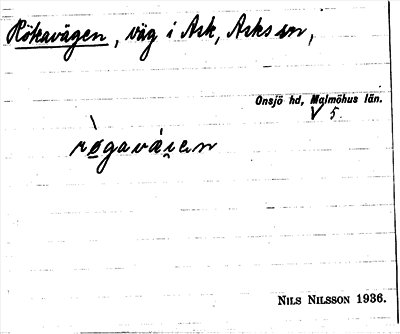 Rökavägen, väg i Ask, Asks sn,
Onsjö hd, Malmöhus län.
V 5.
rògavái̯en
NILS NILSSON 1936.